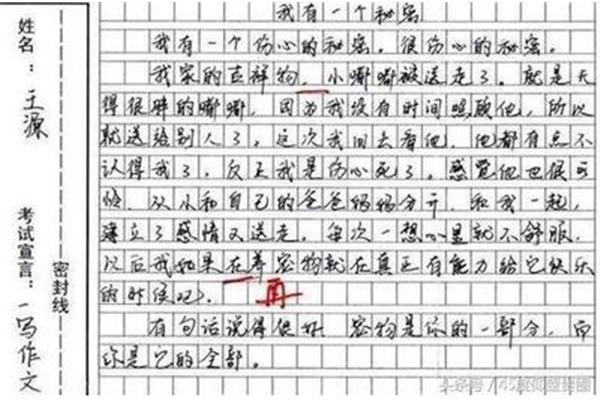 姓名：王源
考试宣言：一写作文
密封线
我有一个秘密
我有一个伤心的秘密。很伤心的秘密。
我家的吉祥物，小嘟嘟被送走了。就是天
得很胖的嘟嘟，因为我没有时间照顾他，所以
就送给别人了。这次我回去看他，他都有点不
认得我了，反正我是伤心死了，感觉他也很可
怜，从小和自己的爸爸妈妈分开，和我一起，
建立了感情又送走。每次一想心里就不舒服，
以后我如果在养宠物就在真正有能力给它快乐
的时候吧。
再
有句话说得很好 宠物是你的一部分，而
你是它的全部。
头条号／45度仰望韩圈